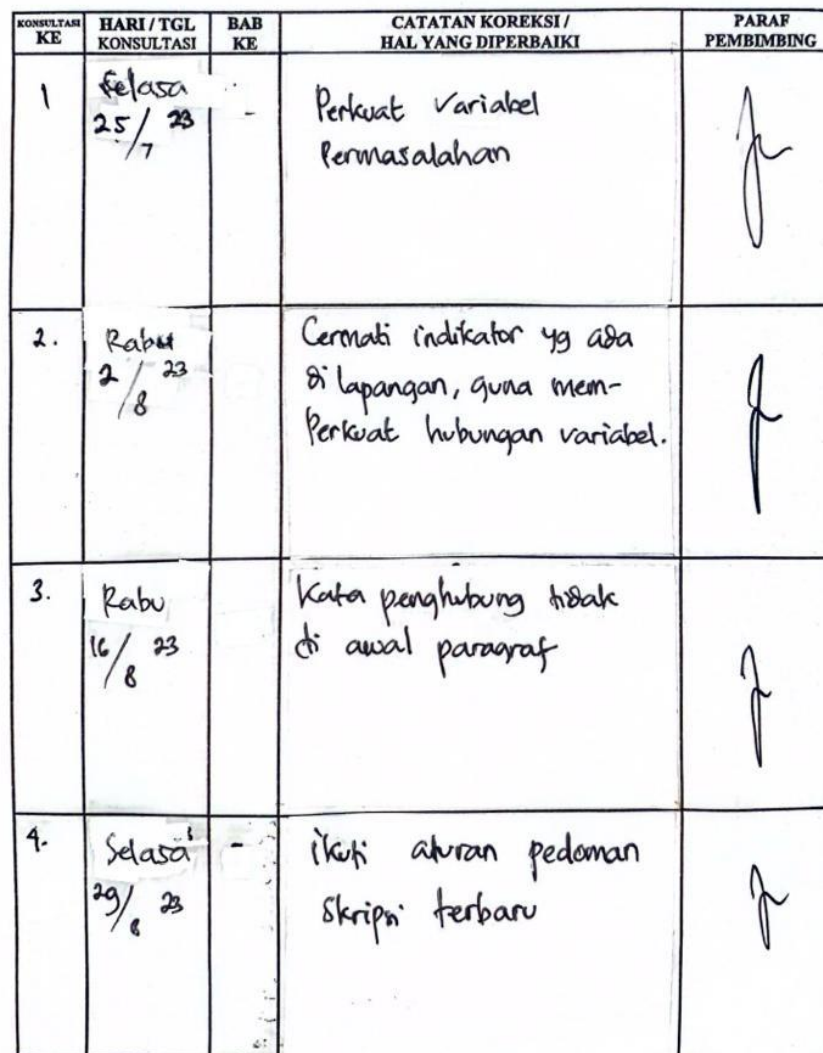 KONSULTASI KE
HARI / TGL KONSULTASI
BAB KE
CATATAN KOREKSI / HAL YANG DIPERBAIKI
PARAF PEMBIMBING
1
Selasa
25/7 23
-
Perkuat Variabel
Permasalahan
2.
Rabu
2/8 23
Cermati indikator yg ada
di lapangan, guna mem-
Perkuat hubungan variabel.
3.
Rabu
16/8 23
Kata penghubung tidak
di awal paragraf
4.
Selasa
29/8 23
-
ikuti aturan pedoman
Skripsi terbaru